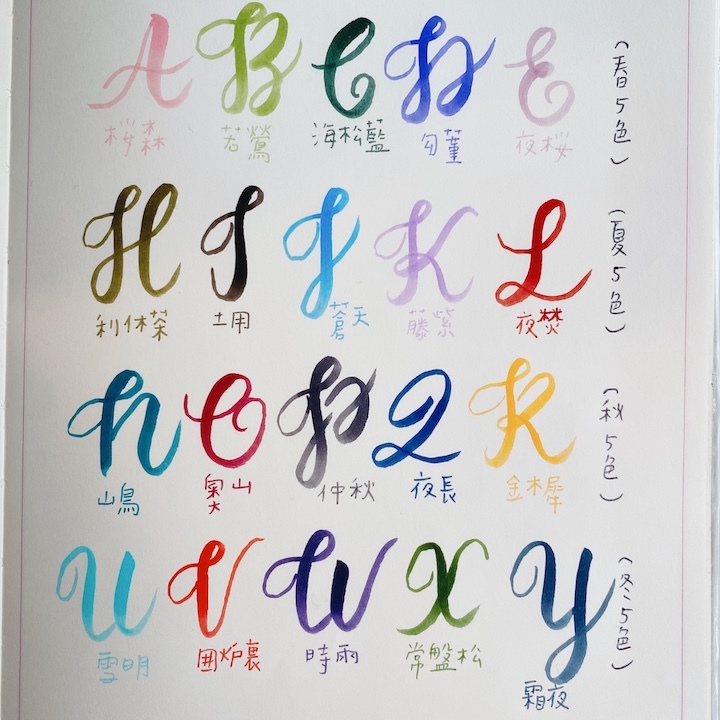 A B C D E
桜森 若鶯 海松藍 匂菫 夜桜
（春5色）
H I J K L
利休茶 土用 蒼天 藤紫 夜焚
（夏5色）
N O P Q R
山鳥 奥山 仲秋 夜長 金木犀
（秋5色）
U V W X Y
雪明 囲炉裏 時雨 常盤松 霜夜
（冬5色）